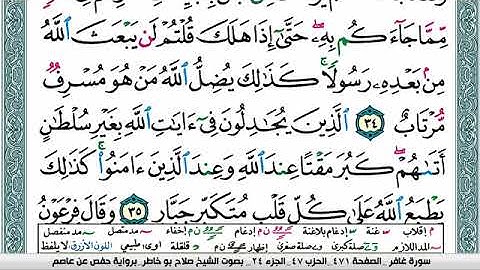 مِّمَّا جَآءَكُم بِهِۦۖ حَتَّىٰٓ إِذَا هَلَكَ قُلۡتُمۡ لَن يَبۡعَثَ ٱللَّهُ
مِنۢ بَعۡدِهِۦ رَسُولٗاۚ كَذَٰلِكَ يُضِلُّ ٱللَّهُ مَنۡ هُوَ مُسۡرِفٞ
مُّرۡتَابٌ ٣٤ ٱلَّذِينَ يُجَٰدِلُونَ فِيٓ ءَايَٰتِ ٱللَّهِ بِغَيۡرِ سُلۡطَٰنٍ
أَتَىٰهُمۡۖ كَبُرَ مَقۡتًا عِندَ ٱللَّهِ وَعِندَ ٱلَّذِينَ ءَامَنُواْۚ كَذَٰلِكَ
يَطۡبَعُ ٱللَّهُ عَلَىٰ كُلِّ قَلۡبِ مُتَكَبِّرٖ جَبَّارٖ ٣٥ وَقَالَ فِرۡعَوۡنُ
م إقلاب غنة إدغام بلاغنة إدغام إخفاء مد متصل مد منفصل
المد اللازم صلة كبرى صلة صغرى إظهار قلقلة طبيعي اللون الأزرق لا يلفظ
سورة غافر _ الصفحة ٤٧١ _ الحزب ٤٧ _ الجزء ٢٤ _ بصوت الشيخ صلاح بو خاطر _ برواية حفص عن عاصم